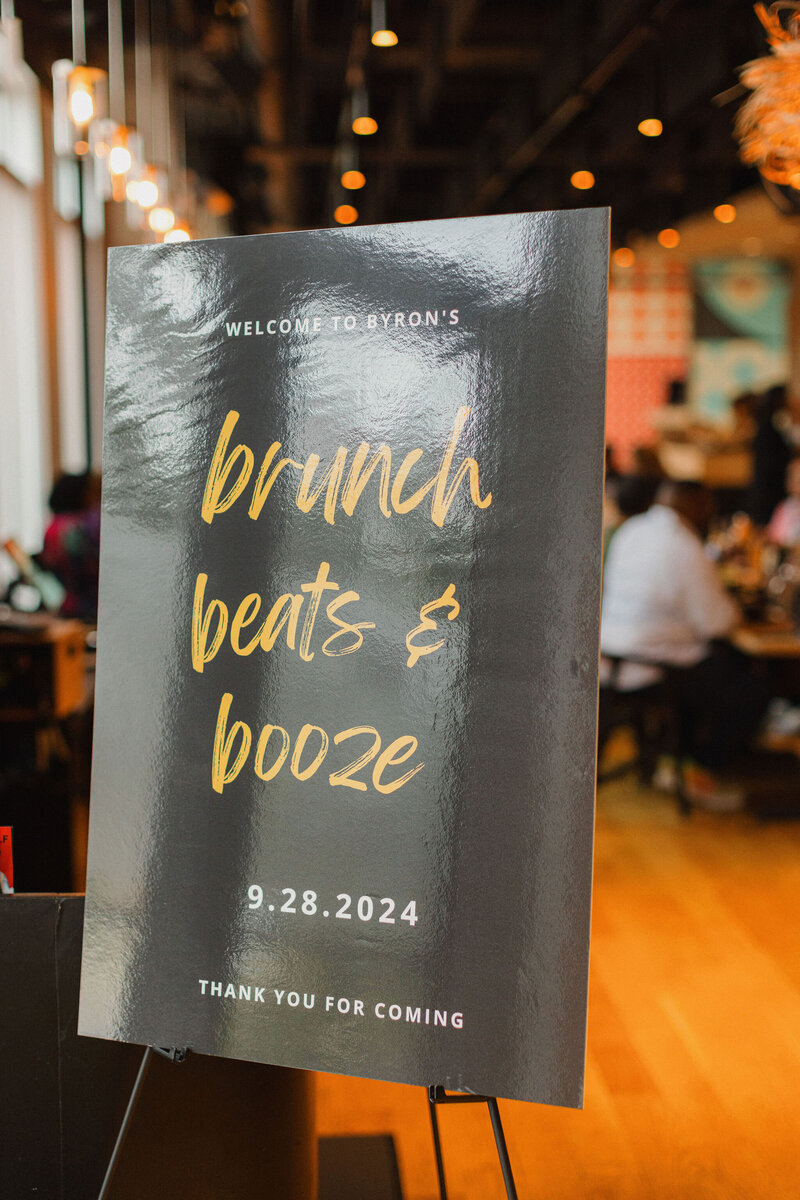 WELCOME TO BYRON'S
brunch
beats &
booze
9.28.2024
THANK YOU FOR COMING